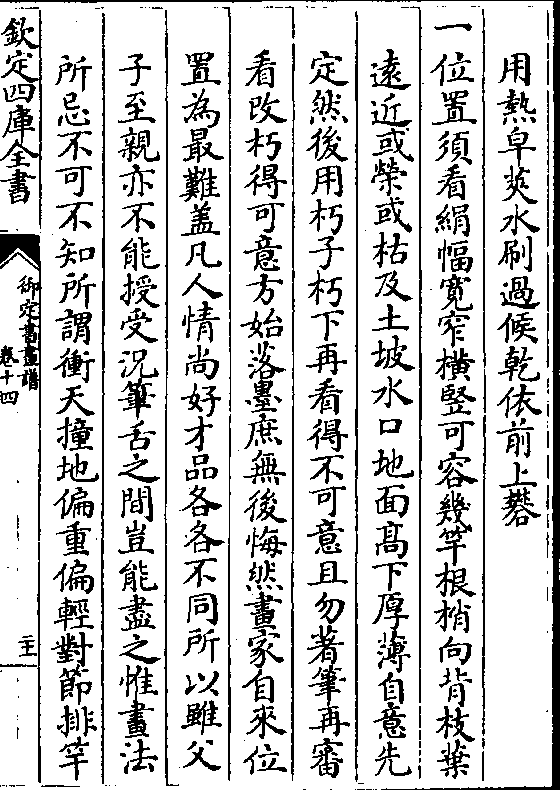 用熱皁莢水刷過候乾依前上礬
一位置須看絹幅寛窄橫竪可容幾竿根梢向背枝葉
逺近或榮或枯及土坡水口地面髙下厚薄自意先
定然後用朽子朽下再看得不可意且勿著筆再審
看改朽得可意方始落墨庶無後悔然畫家自來位
置為最難蓋凡人情尚好才品各各不同所以雖父
子至親亦不能授受況筆舌之間豈能盡之惟畫法
所忌不可不知所謂衝天撞地偏重偏輕對節排竿
欽定四庫全書
御定書畫譜
卷十四